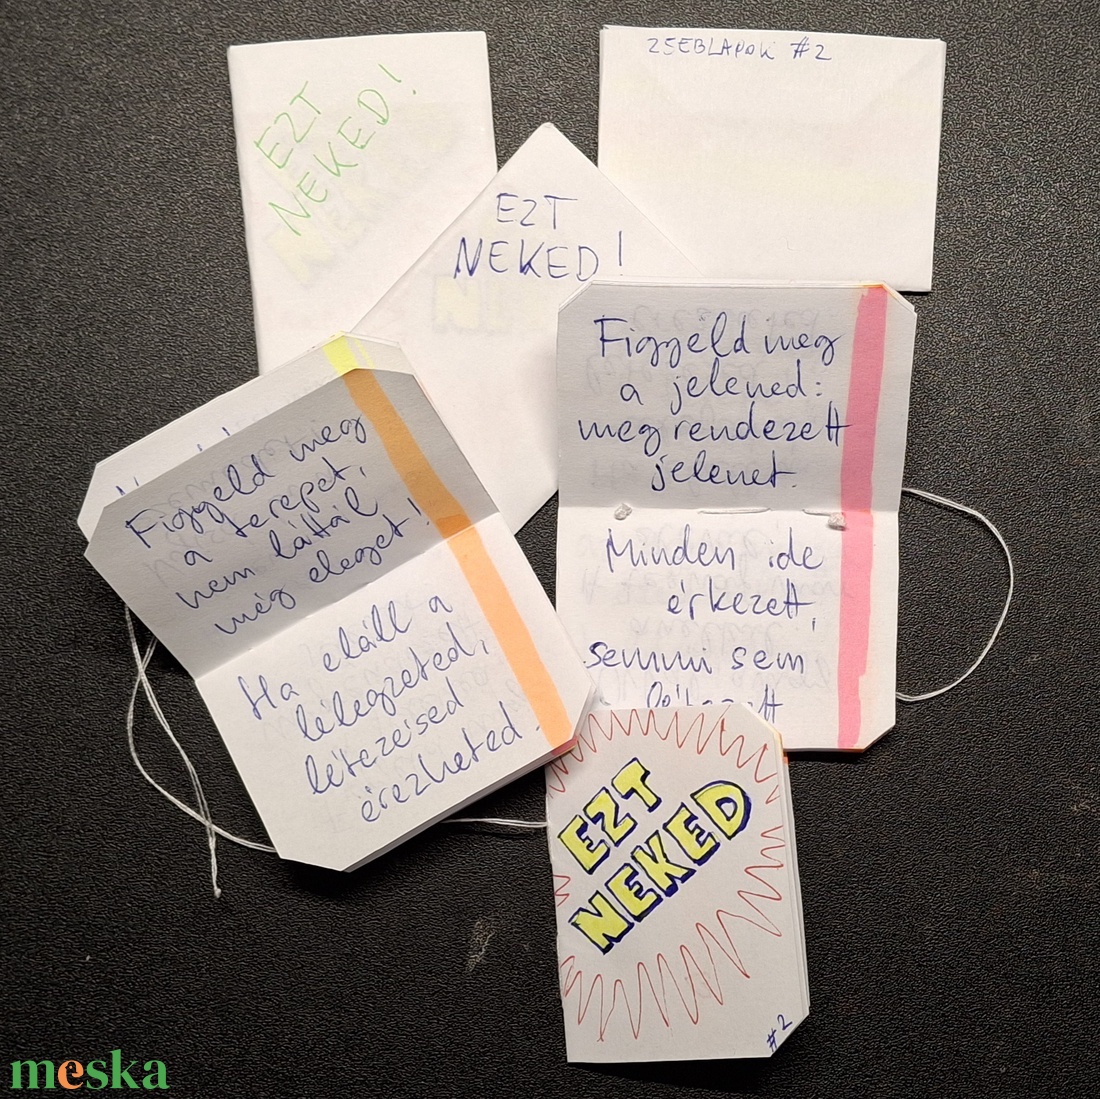 EZT
NEKED!
ZSEBLAPOK #2
EZT
NEKED!
Figgeld meg
a terepet,
nem láttál
még eleget!
Ha eláll a
lélegzeted,
létezésed
érezheted.
Figgeld meg
a jelened:
megrendezett
jelenet.
Minden ide
érkezett,
semmi sem
EZT
NEKED
#2
meska